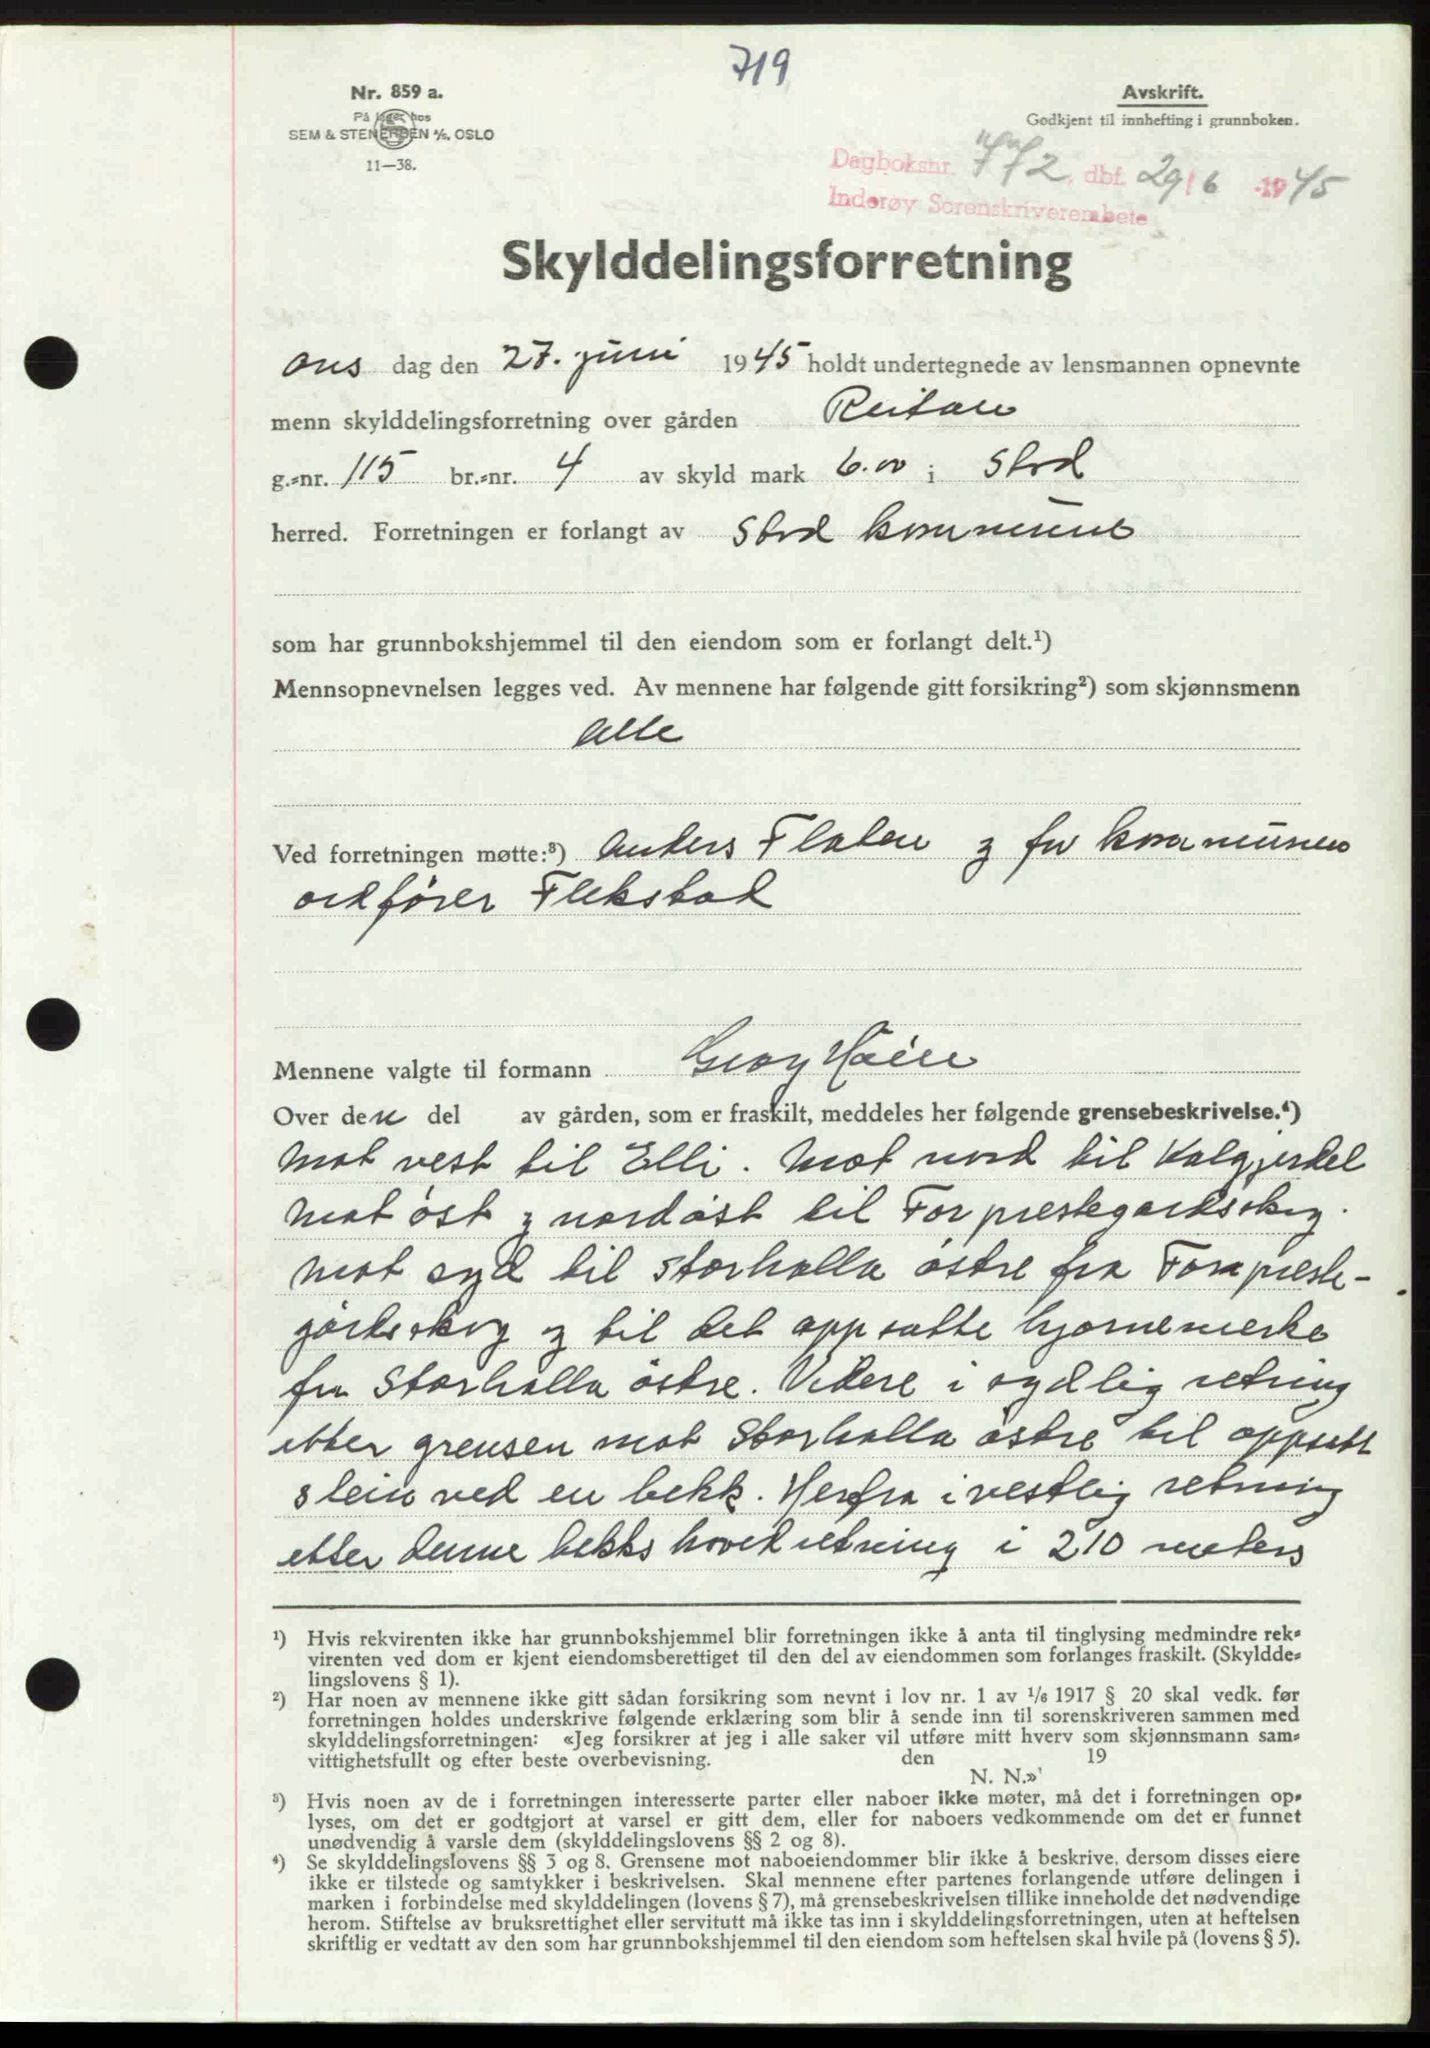 719
Nr. 859 a.
På lager hos
SEM & STENERSEN A/S, OSLO
11—38.
Avskrift.
Godkjent til innhefting i grunnboken.
Dagboksnr. 772, dbf. 29/6 -1945
Inderøy Sorenskriverembete
Skylddelingsforretning
ons dag den 27. juni 1945 holdt undertegnede av lensmannen opnevnte
menn skylddelingsforretning over gården Reitan
g.=nr. 115 br.=nr. 4 av skyld mark 6.00 i Stod
herred. Forretningen er forlangt av Stod kommune
som har grunnbokshjemmel til den eiendom som er forlangt delt.¹)
Mennsopnevnelsen legges ved. Av mennene har følgende gitt forsikring²) som skjønnsmenn
Alle
Ved forretningen møtte:³) Anders Flaten og for kommunen
ordfører Flekstad
Mennene valgte til formann Georg
Over den del av gården, som er fraskilt, meddeles her følgende grensebeskrivelse.⁴)
Mot vest til Elli. Mot nord til Kalgjerdel
Mot öst og nordöst til For prestegardsskog.
Mot syd til Storhalla östre fra For preste-
gårdsskog og til det oppsatte hjørnemerke
fra Storhalla östre. Videre i sydlig retning
etter grensen mot Storhalla östre til oppsatt
stein ved en bekk. Herfra i vestlig retning
etter denne bekks hovedretning i 210 meters
¹) Hvis rekvirenten ikke har grunnbokshjemmel blir forretningen ikke å anta til tinglysing medmindre rek=
virenten ved dom er kjent eiendomsberettiget til den del av eiendommen som forlanges fraskilt. (Skyldde=
lingslovens § 1).
²) Har noen av mennene ikke gitt sådan forsikring som nevnt i lov nr. 1 av 1/6 1917 § 20 skal vedk. før
forretningen holdes underskrive følgende erklæring som blir å sende inn til sorenskriveren sammen med
skylddelingsforretningen: «Jeg forsikrer at jeg i alle saker vil utføre mitt hverv som skjønnsmann sam=
vittighetsfullt og efter beste overbevisning. den 19
N. N.»
³) Hvis noen av de i forretningen interesserte parter eller naboer ikke møter, må det i forretningen op=
lyses, om det er godtgjort at varsel er gitt dem, eller for naboers vedkommende om det er funnet
unødvendig å varsle dem (skylddelingslovens §§ 2 og 8).
⁴) Se skylddelingslovens §§ 3 og 8. Grensene mot naboeiendommer blir ikke å beskrive, dersom disses eiere
ikke er tilstede og samtykker i beskrivelsen. Skal mennene efter partenes forlangende utføre delingen i
marken i forbindelse med skylddelingen (lovens § 7), må grensebeskrivelsen tillike inneholde det nødvendige
herom. Stiftelse av bruksrettighet eller servitutt må ikke tas inn i skylddelingsforretningen, uten at heftelsen
skriftlig er vedtatt av den som har grunnbokshjemmel til den eiendom som heftelsen skal hvile på (lovens § 5).